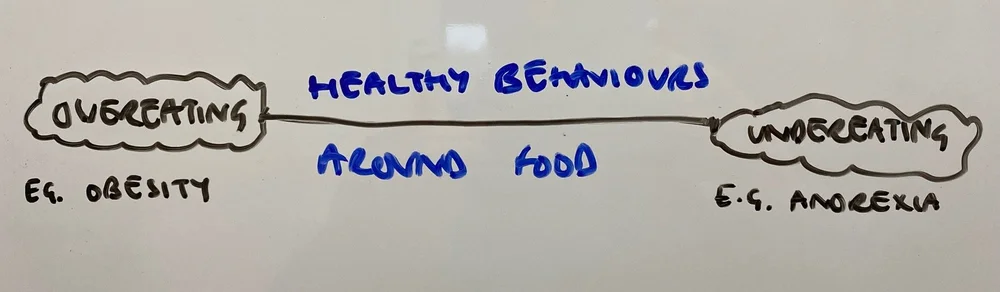 HEALTHY BEHAVIOURS
OVEREATING
UNDEREATING
AROUND FOOD
EG. OBESITY
E.G. ANOREXIA